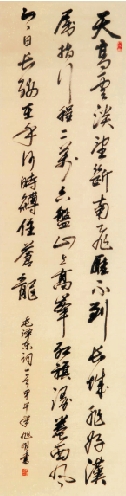 天高云淡望断南飞雁不到长城非好汉
屈指行程二万六盘山上高峰红旗漫卷西风
今日长缨在手何时缚住苍龙
毛泽东词